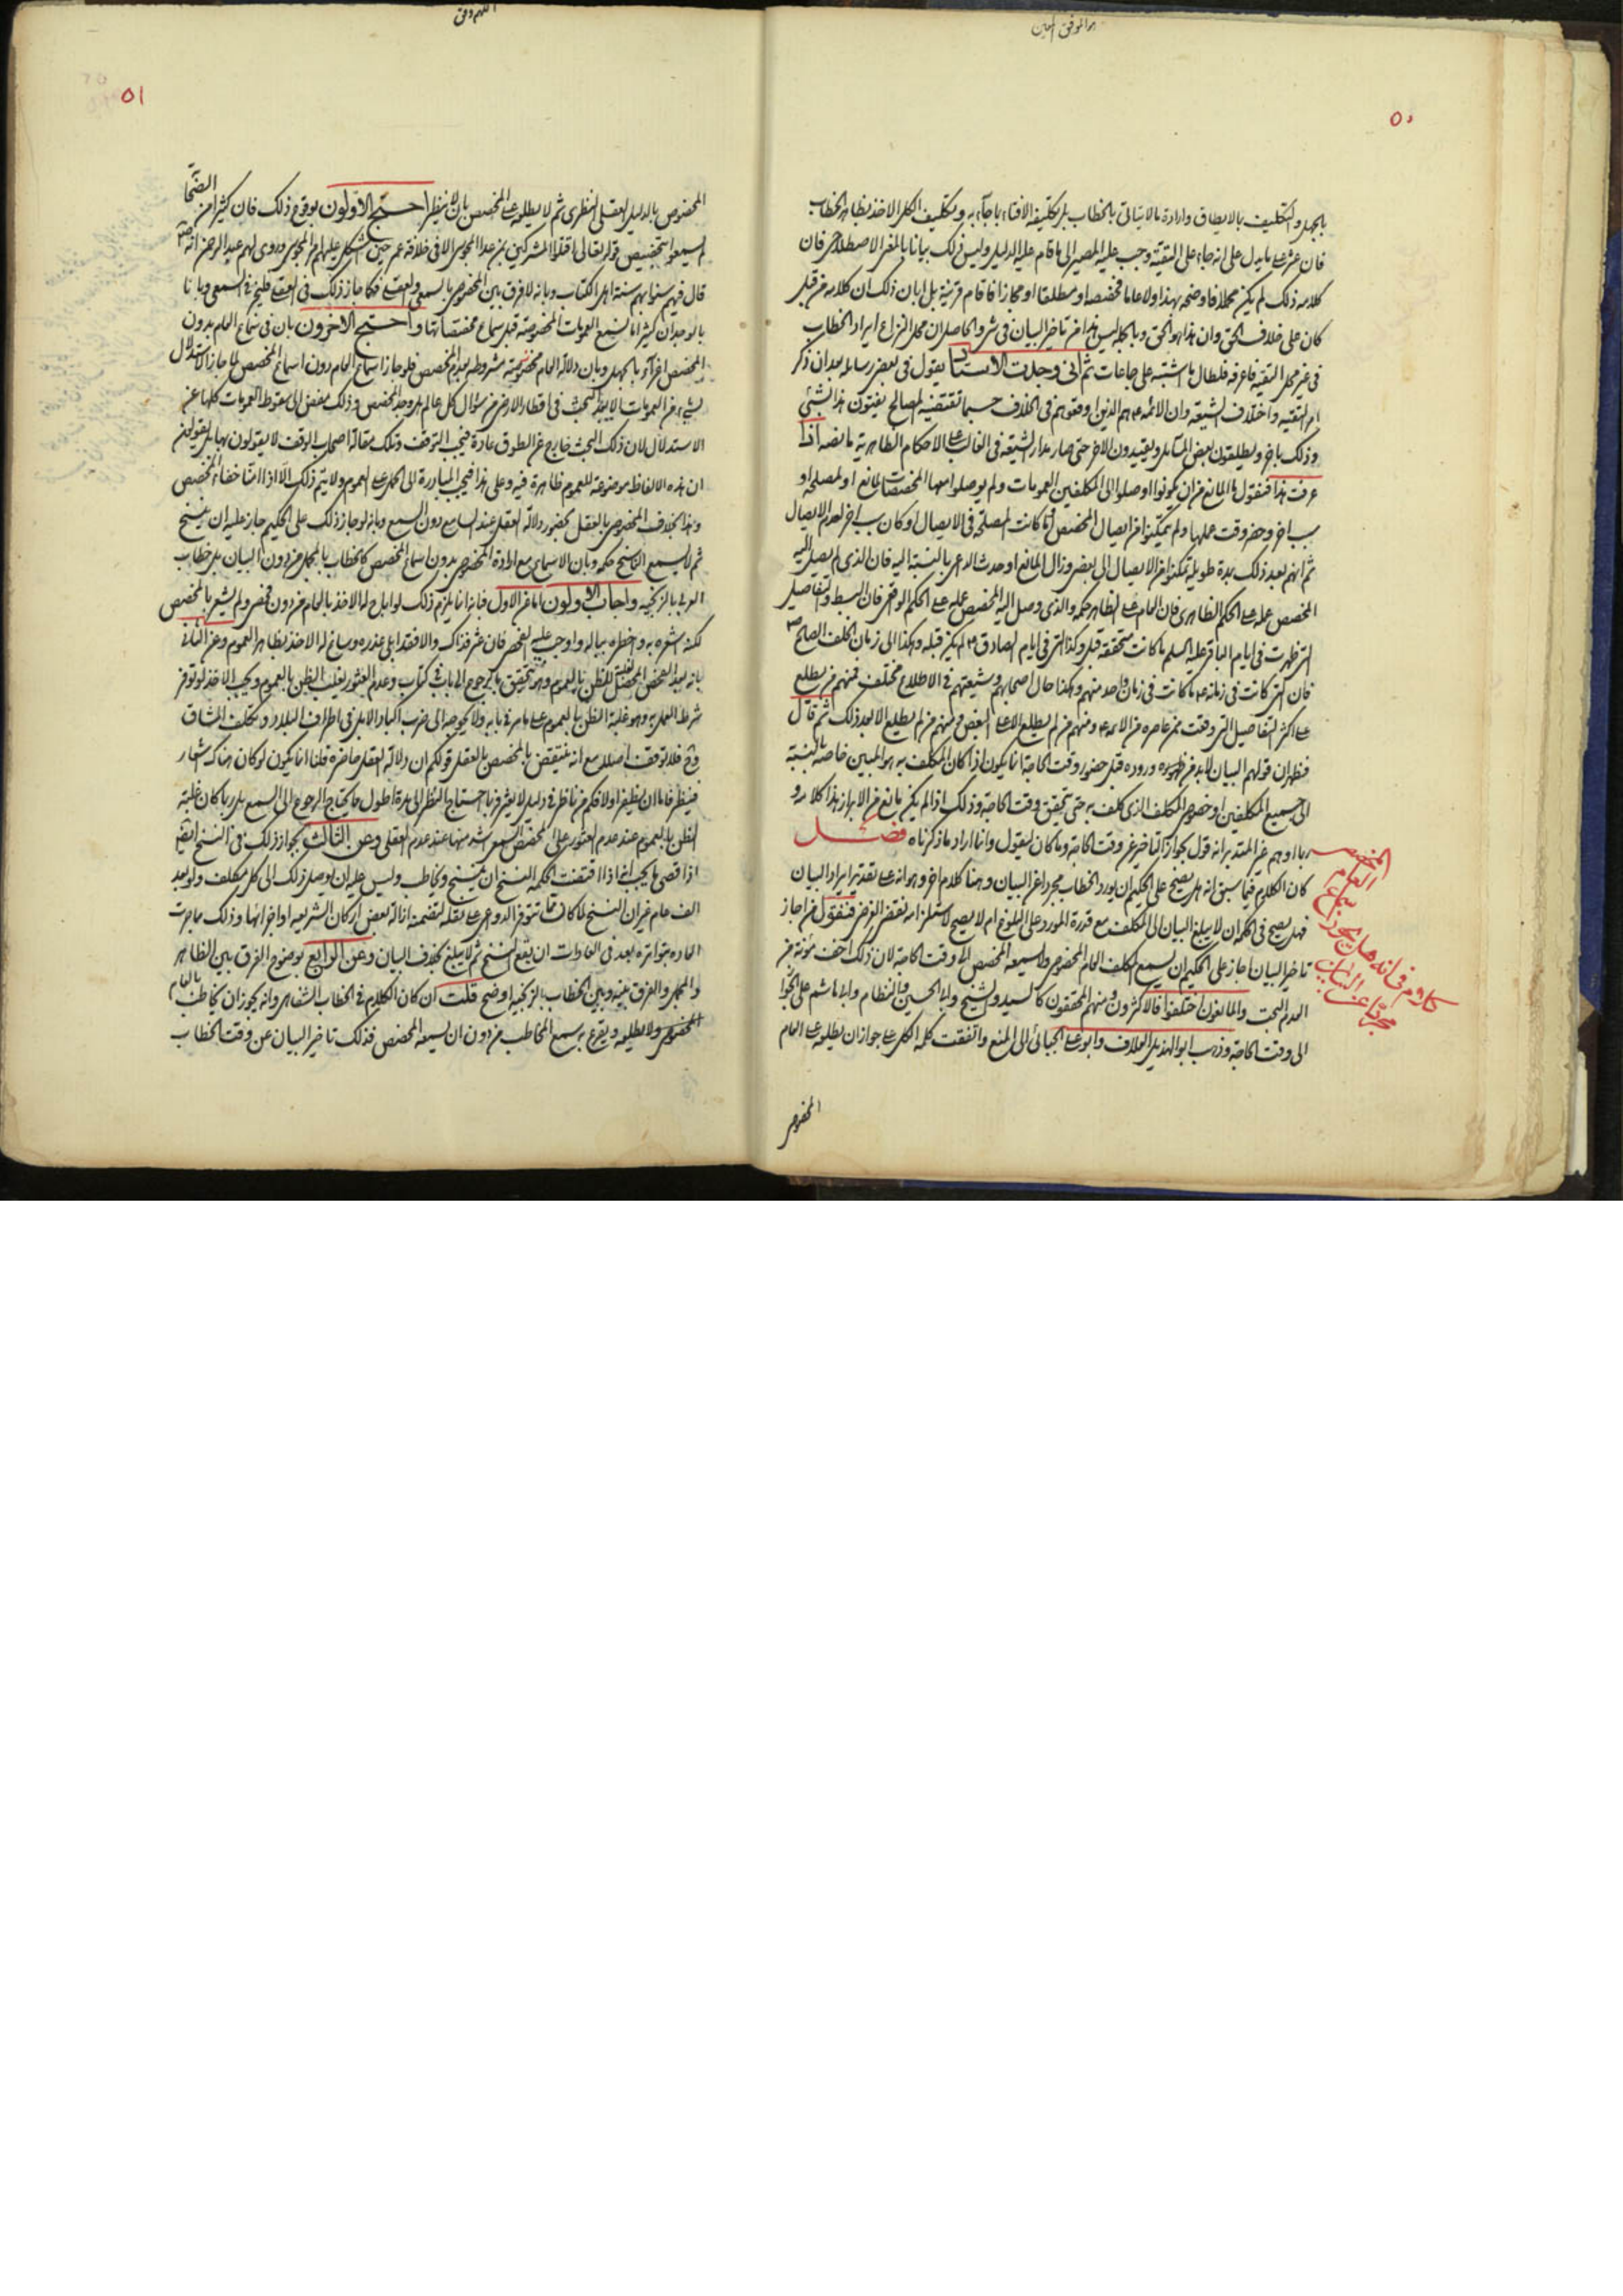 هو الموفق المعين
٥٠
بالجهل والتكليف بالا يطاق وارادة ما لا يتأتى بالخطاب بل تكليفه الافتاء بما جاء به وتكليف الكل الاخذ بظاهر الخطاب
فان عثر على ما يدل على انه جاء على التقية وجب عليه المصير الى ما قام عليه الدليل وليس ذلك بيانا بالمعنى الاصطلاحي فان
كلامه ذلك لم يكن مجملا فاوضحه بهذا ولا عاما فخصصه او مطلقا او مجازا فاقام قرينة بل ابان ذلك ان كلامه من قبل
كان على خلاف الحق وان هذا هو الحق وبالجملة ليس هذا من تاخير البيان في شيء والحاصل ان محل النزاع ايراد الخطاب
في غير محل التقية فاعرفه فلطال ما اشتبه على جماعات ثم اني وجدت الاستاد يقول في بعض رسائله بعد ان ذكر
امر التقية واختلاف الشيعة وان الائمة هم الذين اوقعوهم في الخلاف حسبما تقتضيه المصالح يفتون هذا بشيء
وذلك باخر ويطلقون بعض المسائل ويقيدون الاخر حتى صار مدار الشيعة في الغالب على الاحكام الظاهرية ما نصه اذا
عرفت هذا فنقول ما المانع من ان يكونوا اوصلوا الى المكلفين العمومات ولم يوصلوا معها المخصصات لمانع او لمصلحة او
سبب اخر وحضر وقت عملها ولم يتمكنوا من ايصال المخصص او ما كانت المصلحة في الايصال او كان سبب اخر لعدم الايصال
ثم انهم بعد ذلك بمدة طويلة تمكنوا من الايصال الى بعض وزال المانع او حدث الداعي بالنسبة اليه فان الذي لم يصل اليه
المخصص عمله على الحكم الظاهري فان العام على الظاهر حكمه والذي وصل اليه المخصص عليه على الحكم الواقعي فان البسط والتفاصيل
التي ظهرت في ايام الباقر عليه السلم ما كانت متحققة قبل وكذا التي في ايام الصادق لم يكن قبله وهكذا الى زمان الخلف الصالح
فان التي كانت في زمانه ما كانت في زمان واحد منهم وهكذا حال اصحابهم وشيعتهم في الاطلاع مختلف فمنهم من يطلع
على اكثر التفاصيل التي وقعت ممن عاصره من الائمة ومنهم من لم يطلع الا على البعض ومنهم من لم يطلع الا بعد ذلك ثم قال
فظهر ان قولهم البيان لا بد من ظهوره ووروده قبل حضور وقت الحاجة انما يكون اذا كان المكلف به هو المبين خاصة بالنسبة
الى جميع المكلفين او خصوص المكلف الذي كلف به حتى يتحقق وقت الحاجة وذلك اذا لم يكن مانع من الابراز هذا كلامه و
ربما اوهم غير المتدبر انه قول بجواز التاخير عن وقت الحاجة وما كان ليقول وانما اراد ما ذكرناه فصل
كان الكلام فيما سبق انه هل يصح على الحكيم ان يورد الخطاب مجردا عن البيان وهنا كلام اخر وهو انه على تقدير ايراد البيان
فهل يصح في الحكمة ان لا يبلغ البيان الى المكلف مع قدرة المورد على البلوغ ام لا يصح لاستلزامه نقض الغرض فنقول من اجاز
تاخير البيان اجاز على الحكيم ان يسمع المكلف العام المخصوص ولا يسمعه المخصص الى وقت الحاجة لان ذلك اخف مؤنة من
العدم البحت والمانعون اختلفوا فالاكثرون ومنهم المحققون كالسيد والشيخ وابا الحسين والنظام وابا هاشم على الجواز
الى وقت الحاجة وذهب ابو الهذيل العلاف وابو علي الجبائي الى المنع واتفقت كلمة الكل على جواز ان يطلعه على العام
المخصوص
كلام في انه هل يجوز اسماع العام المخصص
مجردا عن البيان
اللهم وفق
٥١
المخصوص بالدليل العقلي النظري ثم لا يطلعه على المخصص بان لا ينظر احتج الاولون بوقوع ذلك فان كثيرا من الصحابة
لم يسمعوا تخصيص قوله تعالى اقتلوا المشركين بمن عدا المجوس الا في خلافة عمر حين اشكل عليهم امر المجوس وروى لهم عبد الرحمن انه
قال فيهم سنوا بهم سنة اهل الكتاب وبانه لا فرق بين المخصوص بالسمعي والعقلي فكما جاز ذلك في العقلي فليجز في السمعي وبانا
بالوجدان كثيرا ما نسمع العمومات المخصوصة قبل سماع مخصصاتها واحتج الاخرون بان في سماع العام بدون
المخصص اغراء بالجهل وبان دلالة العام مخصوصة مشروطة بعدم المخصص فلو جاز اسماع العام دون اسماع المخصص لما جاز الاستدلال
بشيء من العمومات الا بعد البحث في اقطار الارض من سؤال كل عالم هل وجد المخصص وذلك مفض الى سقوط العمومات كلها عن
الاستدلال لان ذلك البحث خارج عن الطوق عادة فيجب التوقف وتلك مقالة اصحاب الوقف لا يقولون بها بل يقولون
ان هذه الالفاظ موضوعة للعموم ظاهرة فيه وعلى هذا فيجب المبادرة الى الحمل على العموم ولا يتم ذلك الا اذا امنا خفاء المخصص
وهذا بخلاف المخصوص بالعقل لحضور دلالة العقل عند السامع دون السمع وبانه لو جاز ذلك على الحكيم جاز عليه ان ينسخ
ثم لا يسمع الناسخ حكمه وبان الاسماع مع ارادة المخصوص بدون اسماع المخصص كالخطاب بالمجمل من دون البيان بل خطاب
العربي بالزنجية واجاب الاولون اما عن الاول فبانه انما يلزم ذلك لو اباح له الاخذ بالعام من دون فحص ولم يشعر بالمخصص
لكنه اشعره به واخطره بباله واوجب عليه الفحص فان عثر فذاك والا فقد ابلى عذره وساغ له الاخذ بظاهر العموم وعن الثاني
بانه بعد الفحص المحصل للظن بالعموم وهو يتحقق بالرجوع الى باب في كتاب وعدم العثور يغلب الظن بالعموم ويجب الاخذ لو توفر
شرط العمل به وهو غلبة الظن بالعموم على ما مر في بابه ولا يحوجه الى ضرب اكباد الابل في اطراف البلاد وتكلف المشاق
وح فلا توقف اصلا مع انه ينتقض بالمخصص بالعقل قولكم ان دلالة العقل حاضرة قلنا انما يكون لو كان هناك اشعار
فينظر فاما ان يظفر اولا فكم من ناظر في دليل لا يعثر وربما احتاج النظر الى مدة اطول مما يحتاج الرجوع الى السمع بل ربما كان غلبة
الظن بالعموم عند عدم العثور على المخصص السمعي اشد منها عند عدم العقلي وعن الثالث بجواز ذلك في النسخ ايضا
اذا قصى ما يجب انه اذا اقتضت الحكمة النسخ ان ينسخ ويخاطب وليس عليه ان يوصل ذلك الى كل مكلف ولو بعد
الف عام غير ان النسخ لما كان مما تتوفر الدواعي على نقله لتضمنه ازالة بعض اركان الشريعة او اجزائها وذلك مما جرت
العادة بتواتره بعد في العادات ان يقع النسخ ثم لا يبلغ بخلاف البيان وعن الرابع بوضوح الفرق بين الظاهر
والمجمل والفرق بينه وبين الخطاب بالزنجية اوضح قلت ان كان الكلام في الخطاب الشفاهي وانه يجوز ان يخاطب بالعام
المخصوص ولا يطلعه ويقرع به سمع المخاطب من دون ان يسمعه المخصص فذلك تاخير البيان عن وقت الخطاب